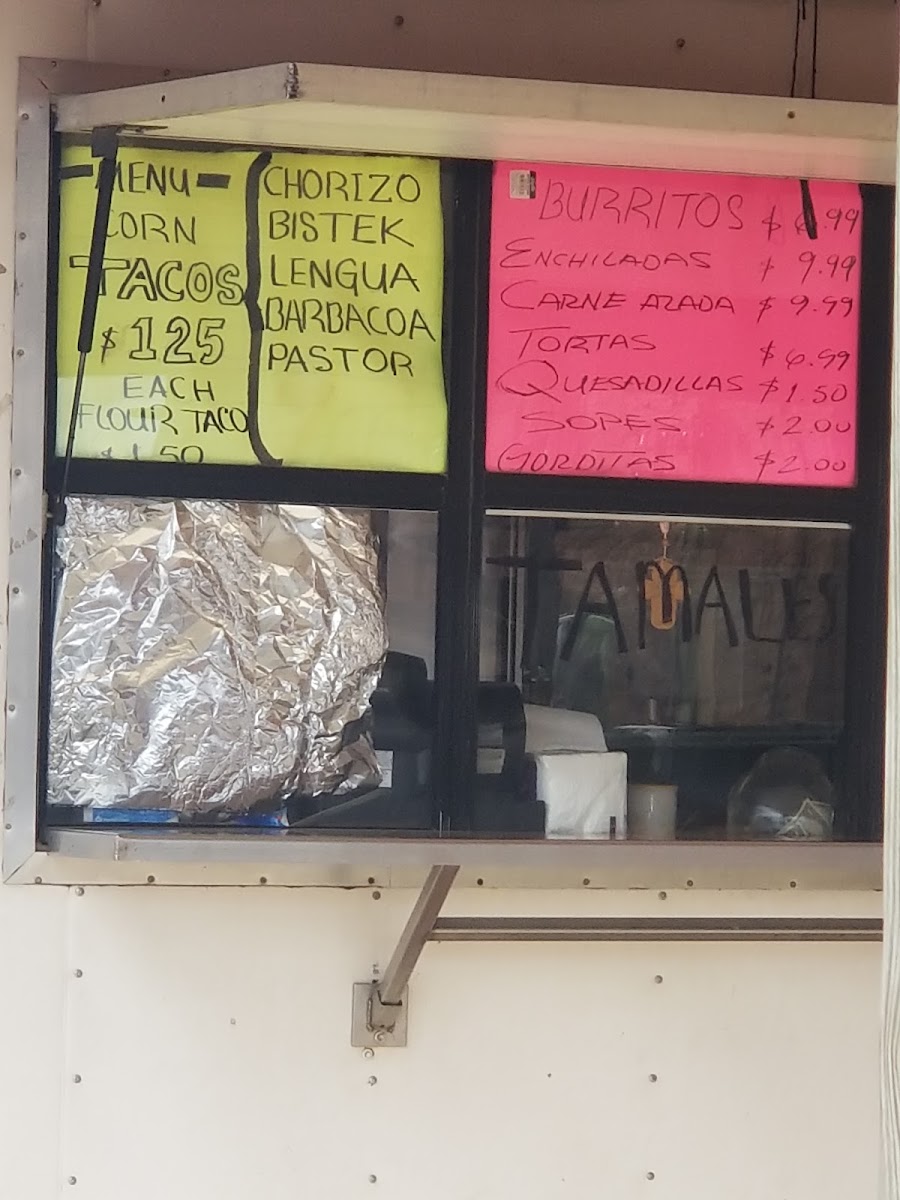 MENU
CORN
TACOS
$125
EACH
FLOUR TACO
$1.50
CHORIZO
BISTEK
LENGUA
BARBACOA
PASTOR
BURRITOS $6.99
ENCHILADAS $9.99
CARNE AZADA $9.99
TORTAS $6.99
QUESADILLAS $1.50
SOPES $2.00
GORDITAS $2.00
TAMALES